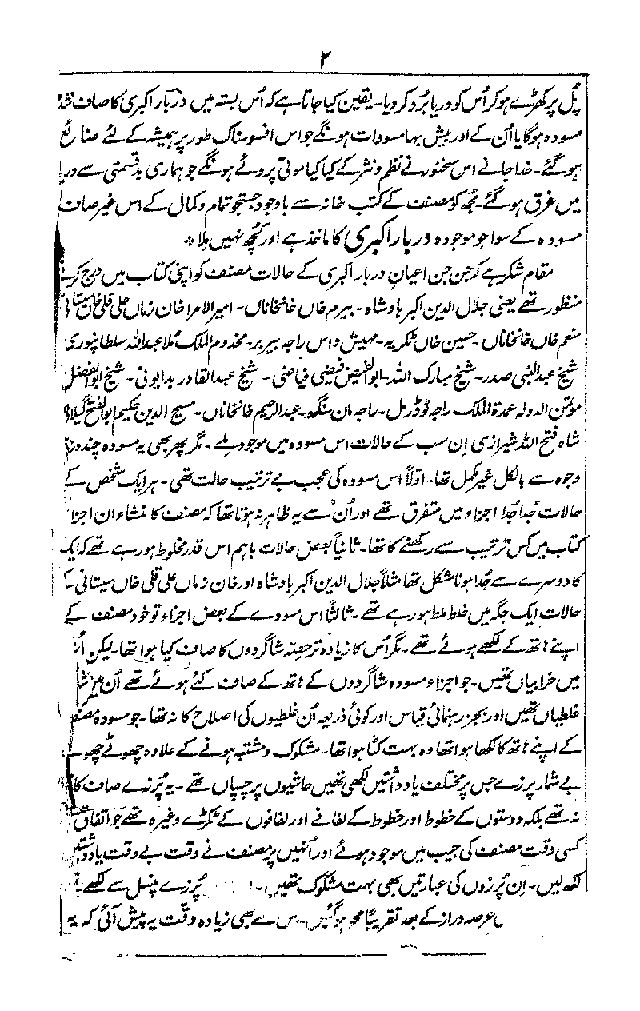 ۲
پُل پر کھڑے ہو کر اُس کو دریا بُرد کر دیا۔ یقین کیا جاتا ہے کہ اُس بستہ میں دربار اکبری کا صاف شدہ
مسودہ ہوگا یا اُن کے اور بیش بہا مسودات ہونگے جو اس افسوسناک طور پر ہمیشہ کے لئے ضائع
ہو گئے۔ خدا جانے اس سخنور نے نظم و نثر کے کیا کیا موتی پروئے ہونگے جو ہماری بدقسمتی سے دریا
میں غرق ہو گئے۔ مجھ کو مصنف کے کتب خانہ سے باوجود جستجو تمام و کمال کے اس غیر صاف
مسودہ کے سوا جو موجودہ دربار اکبری کا ماخذ ہے اور کچھ نہیں ملا *
مقام شکر ہے کہ جن جن اعیان دربار اکبری کے حالات مصنف کو اپنی کتاب میں درج کرنے
منظور تھے یعنی جلال الدین اکبر بادشاہ۔ بیرم خاں خانخاناں۔ امیر الامرا خان زماں علی قلی خاں سیستانی
منعم خاں خانخاناں۔ حسین خاں ٹکریہ۔ مہیش داس راجہ بیربر۔ مخدوم الملک ملا عبداللہ سلطانپوری
شیخ عبدالنبی صدر۔ شیخ مبارک اللہ۔ ابوالفیض فیضی فیاضی۔ شیخ عبدالقادر بدایونی۔ شیخ ابوالفضل
مؤتمن الدولہ عمدۃ الملک راجہ ٹوڈرمل۔ راجہ مان سنگھ۔ عبدالرحیم خانخاناں۔ مسیح الدین حکیم ابوالفتح گیلانی
شاہ فتح اللہ شیرازی اِن سب کے حالات اس مسودہ میں موجود ملے۔ مگر پھر بھی یہ مسودہ چند در چند
وجوہ سے بالکل غیر مکمل تھا۔ اولاً اس مسودہ کی عجب بے ترتیب حالت تھی۔ ہر ایک شخص کے
حالات جُدا جُدا اجزاء میں متفرق تھے اور اُن سے یہ ظاہر نہ ہوتا تھا کہ مصنف کا منشاء ان اجزا
کتاب میں کس ترتیب سے رکھنے کا تھا۔ ثانیاً بعض حالات باہم اس قدر مخلوط ہو رہے تھے کہ ایک
کا دوسرے سے جُدا ہونا مشکل تھا مثلاً جلال الدین اکبر بادشاہ اور خان زماں علی قلی خاں سیستانی کے
حالات ایک جگہ میں خلط ملط ہو رہے تھے۔ ثالثاً اس مسودے کے بعض اجزاء تو خود مصنف کے
اپنے ہاتھ کے لکھے ہوئے تھے۔ مگر اُس کا زیادہ تر حصہ شاگردوں کا صاف کیا ہوا تھا۔ لیکن اُن
میں خرابیاں تھیں۔ جو اجزاء مسودہ شاگردوں کے ہاتھ کے صاف کئے ہوئے تھے اُن میں
غلطیاں تھیں اور بجز رہنمائی قیاس اور کوئی ذریعہ اُن غلطیوں کی اصلاح کا نہ تھا۔ جو مسودہ مصنف
کے اپنے ہاتھ کا لکھا ہوا تھا وہ بہت کٹا ہوا تھا۔ مشکوک و مشتبہ ہونے کے علاوہ چھوٹے چھوٹے
بے شمار پرزے جس پر مختلف یادداشتیں لکھی تھیں حاشیوں پر چسپاں تھے۔ یہ پُرزے صاف کاغذ
نہ تھے بلکہ دوستوں کے خطوط اور خطوط کے لفافے اور لفافوں کے ٹکڑے وغیرہ تھے جو اتفاق
کسی وقت مصنف کی جیب میں موجود ہوئے اور اُنہیں پر مصنف نے وقت بے وقت یادداشتیں
لکھ لیں۔ اِن پُرزوں کی عبارتیں بھی بہت مشکوک تھیں۔ پُرزے پنسل سے لکھے
عرصہ دراز کے بعد تقریباً محو ہو گئیں۔ س سے بھی زیادہ وقت یہ پیش آئی کہ یہ